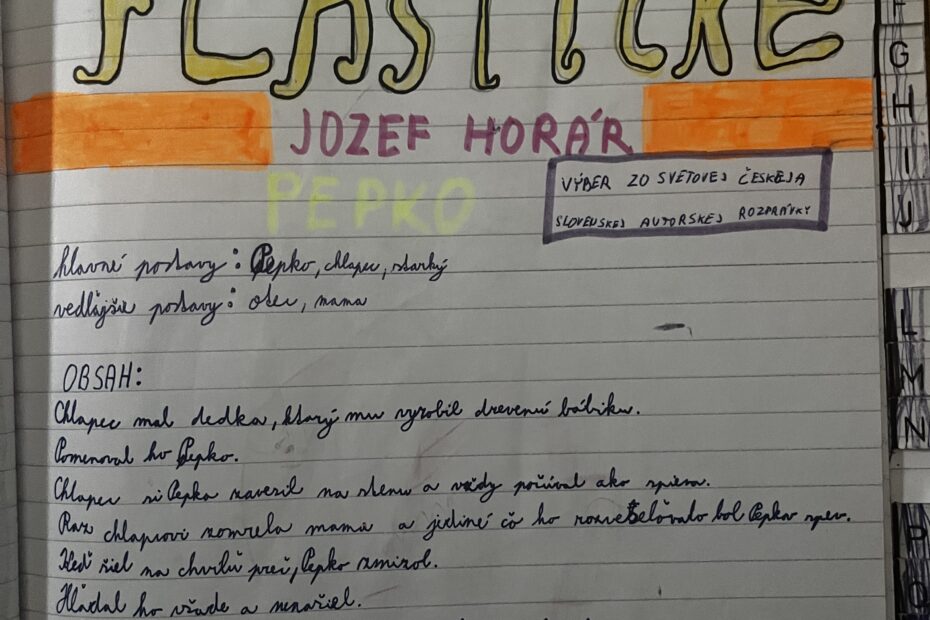 PLASTICKÉ
JOZEF HORÁR
PEPKO
VÝBER ZO SVETOVEJ ČESKEJ A
SLOVENSKEJ AUTORSKEJ ROZPRÁVKY
hlavné postavy: Pepko, chlapec, starký
vedľajšie postavy: otec, mama
OBSAH:
Chlapec mal dedka, ktorý mu vyrobil drevenú bábiku.
Pomenoval ho Pepko.
Chlapec si Pepka zavesil na stenu a vždy počúval ako spieva.
Raz chlapcovi zomrela mama a jediné čo ho rozveseľovalo bol Pepkov spev.
Keď šiel na chvíľu preč, Pepko zmizol.
Hľadal ho všade a nenašiel.
G
H
I
J
L
M
N